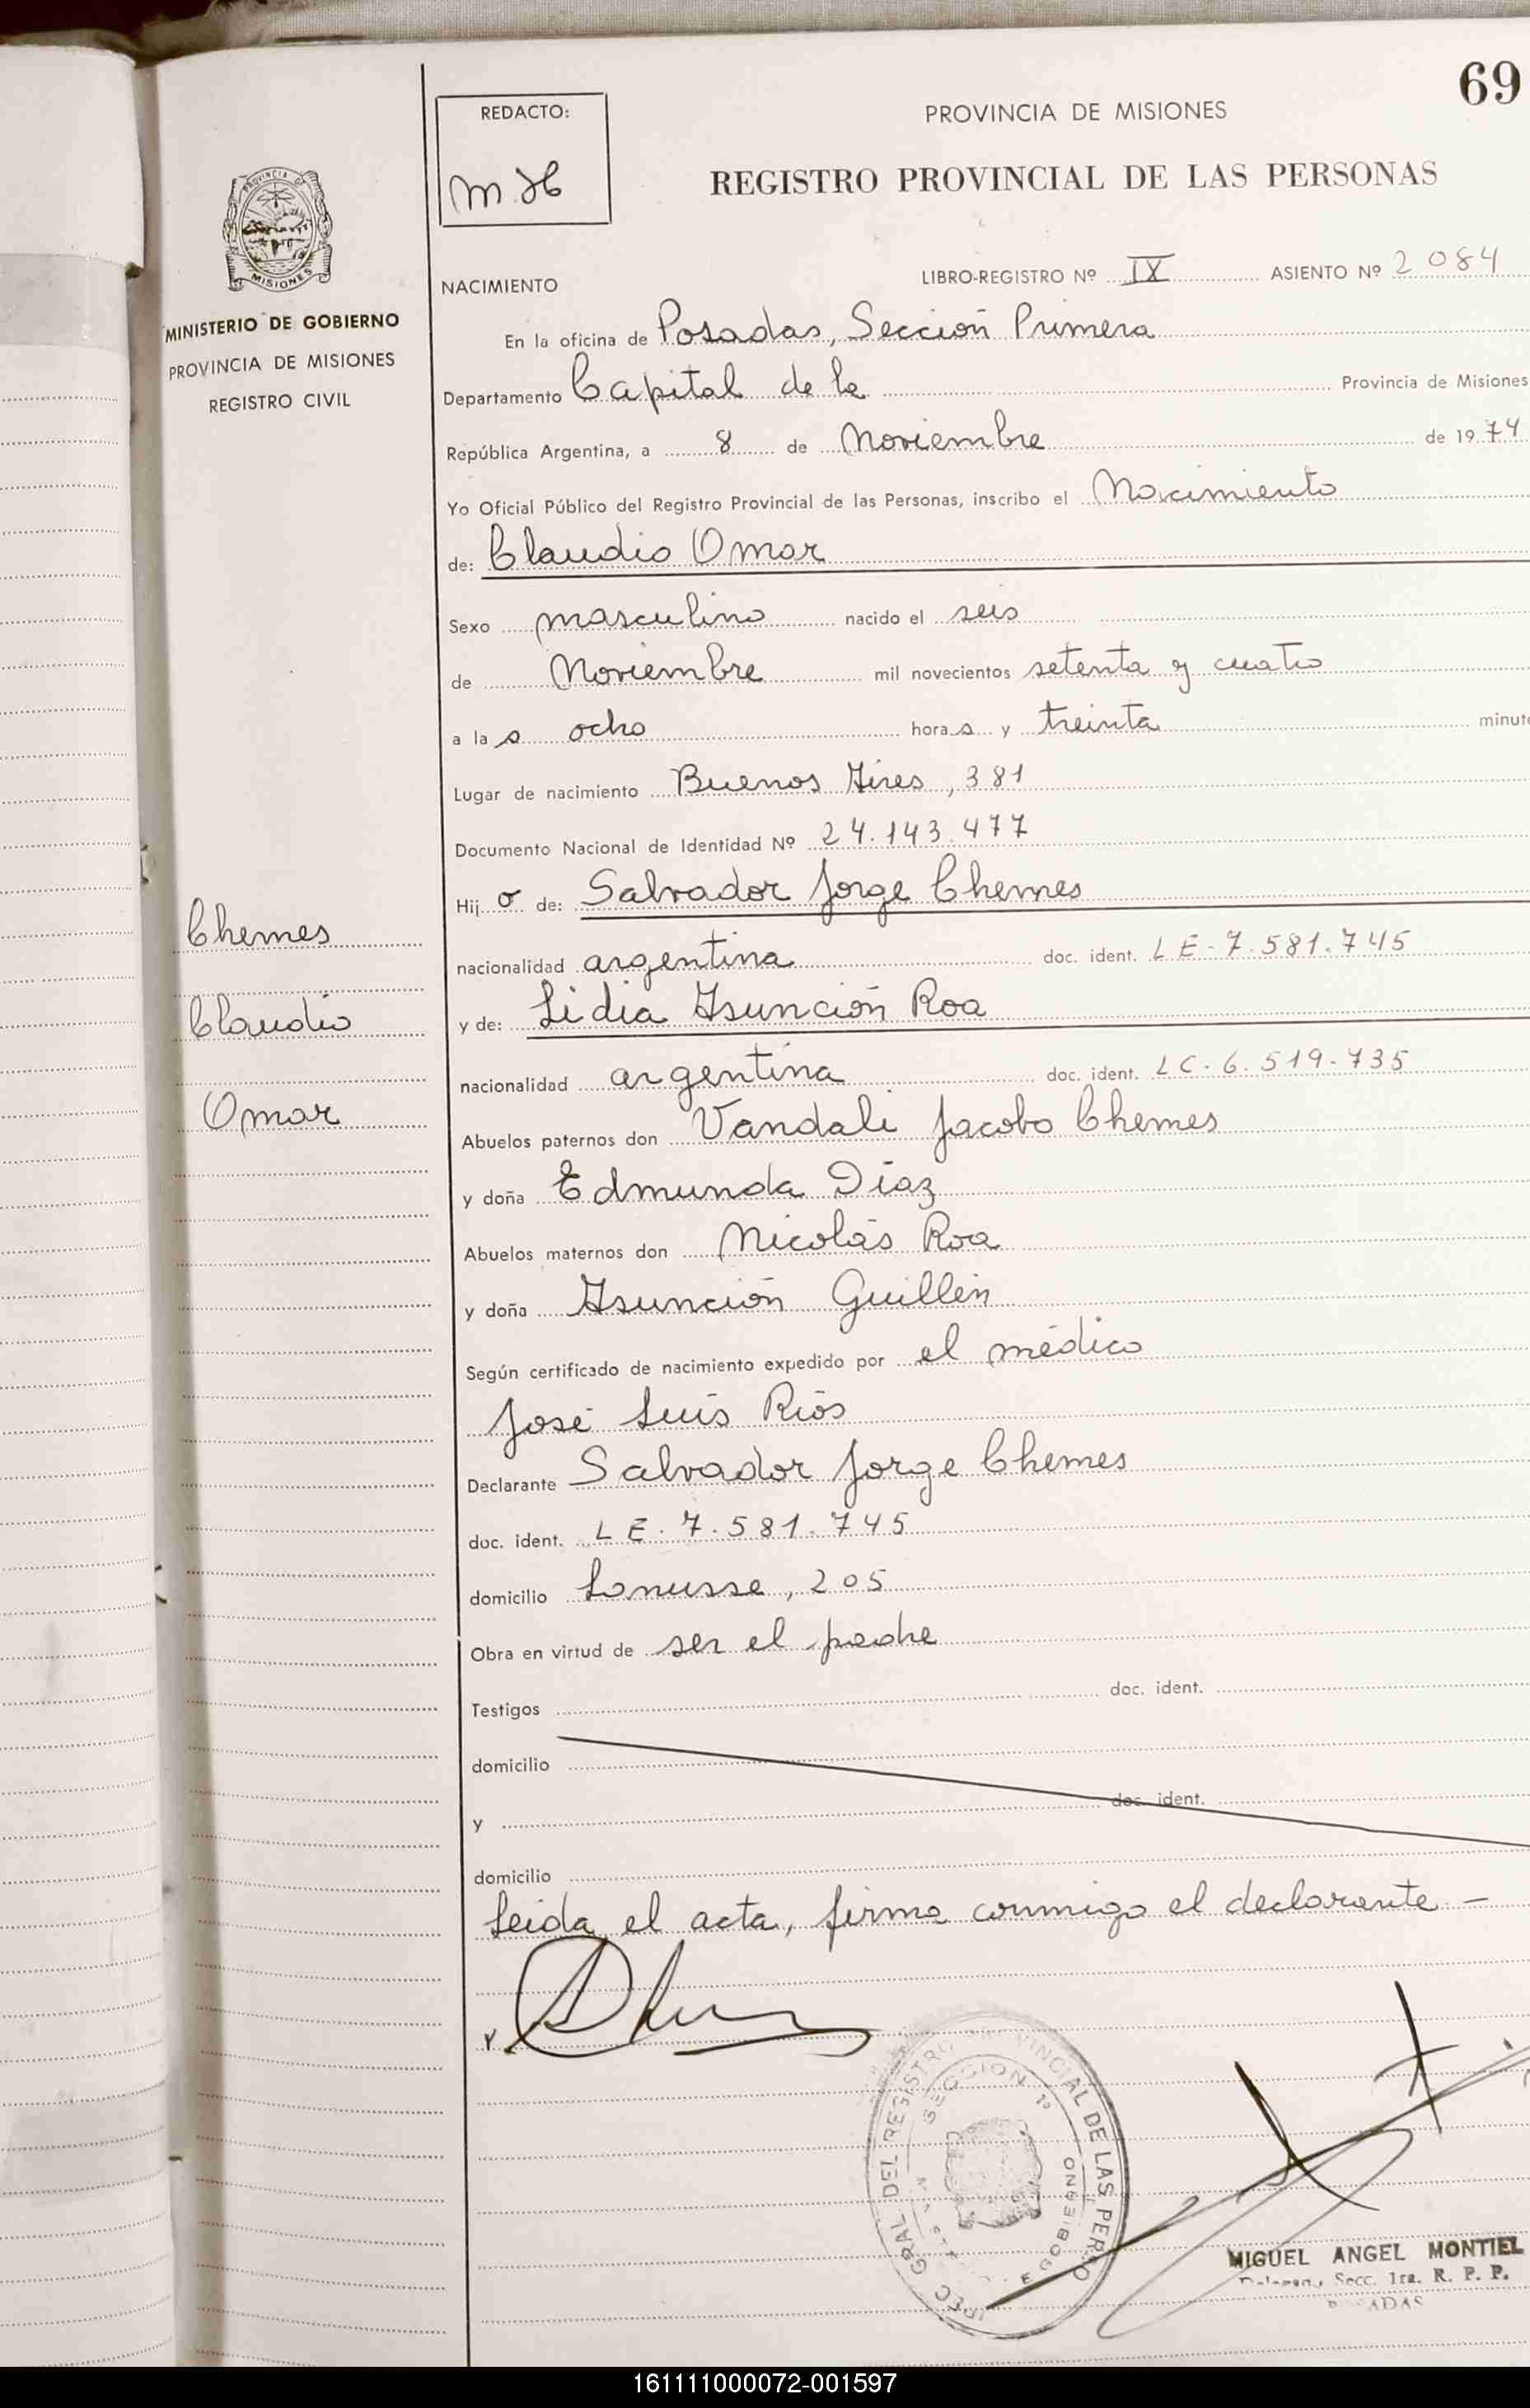 69
REDACTO:
PROVINCIA DE MISIONES
REGISTRO PROVINCIAL DE LAS PERSONAS
PROVINCIA DE
MISIONES
MINISTERIO DE GOBIERNO
PROVINCIA DE MISIONES
REGISTRO CIVIL
NACIMIENTO
LIBRO-REGISTRO Nº IX ASIENTO Nº 2084
En la oficina de Posadas, Sección Primera
Departamento Capital de la Provincia de Misiones
República Argentina, a 8 de Noviembre de 1974
Yo Oficial Público del Registro Provincial de las Personas, inscribo el Nacimiento
de: Claudio Omar
Sexo masculino nacido el seis
de Noviembre mil novecientos setenta y cuatro
a las ocho horas y treinta minuto
Lugar de nacimiento Buenos Aires, 381
Documento Nacional de Identidad Nº 24.143.477
Hijo de: Salvador Jorge Chemes
nacionalidad argentina doc. ident. LE-7.581.745
y de: Lidia Asunción Roa
nacionalidad argentina doc. ident. LC.6.519-735
Abuelos paternos don Vandali Jacobo Chemes
y doña Edmunda Díaz
Abuelos maternos don Nicolás Roa
y doña Asunción Guillén
Según certificado de nacimiento expedido por el médico
José Luis Ríos
Declarante Salvador Jorge Chemes
doc. ident. LE.7.581.745
domicilio Lanusse, 205
Obra en virtud de ser el padre
Testigos doc. ident.
domicilio
y doc. ident.
domicilio
Leída el acta, firma conmigo el declarante -
Chemes
Claudio
Omar
GRAL DEL REGISTRO PROVINCIAL DE LAS PERSO
SECCION 1ª
GOBIERNO
MIGUEL ANGEL MONTIEL
Secc. 1ra. R. P. P.
POSADAS
161111000072-001597